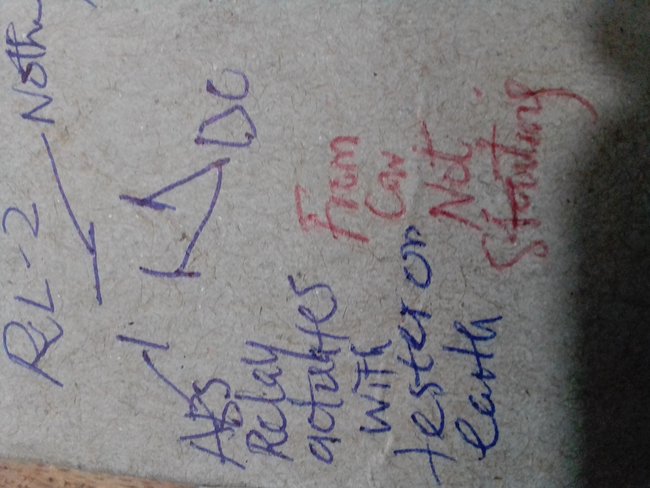 RL-2
DC
ABS
Relay
actuates
with
tester on
earth
From
Car
Not
Starting